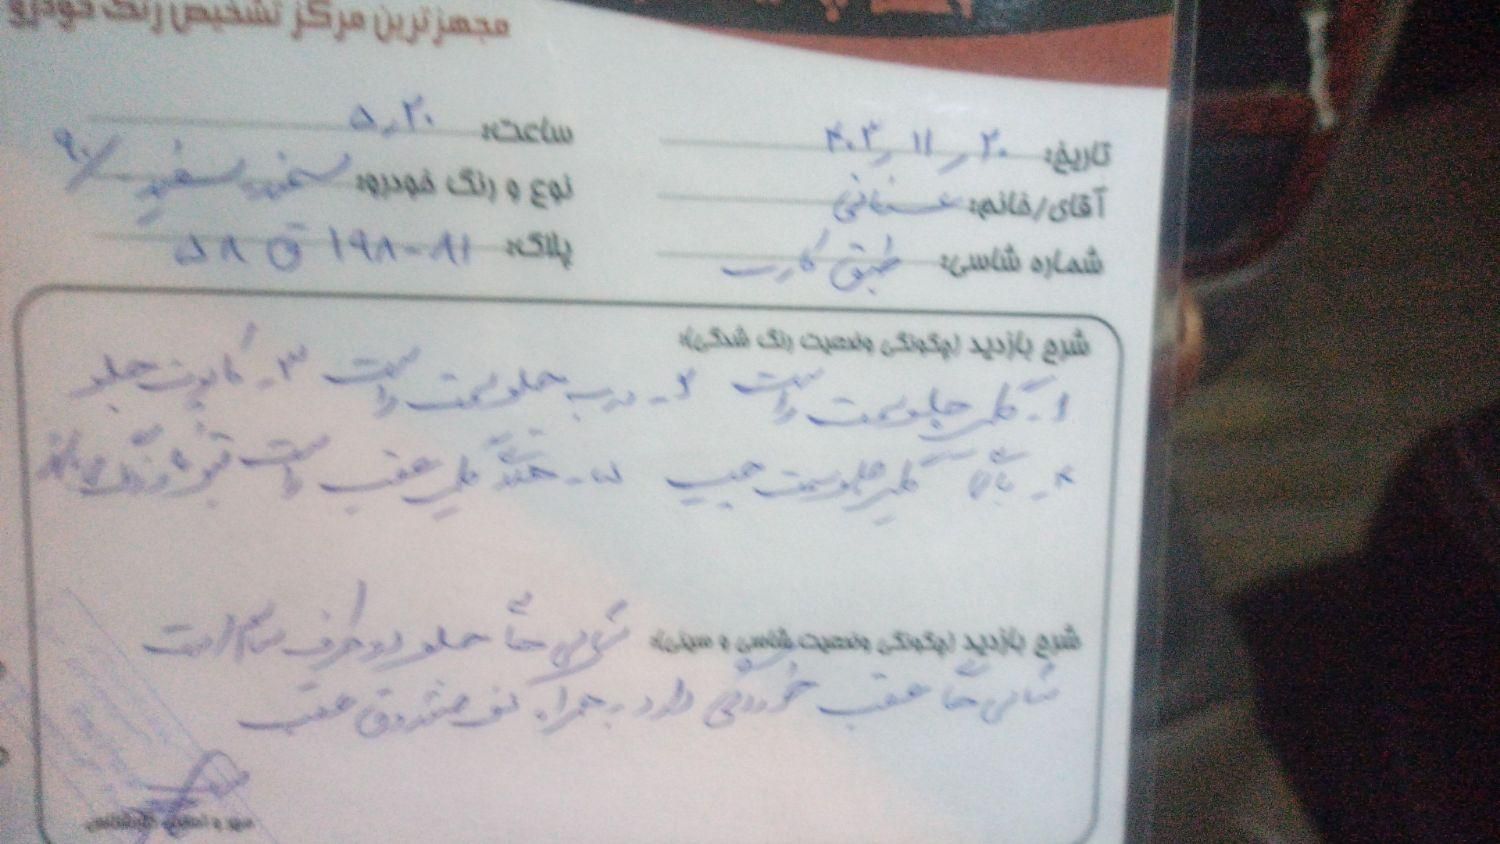 مجهزترین مرکز تشخیص رنگ خودرو
تاریخ: ۴۰۳/۱۱/۲۰ ساعت: ۵/۲۰
آقای/خانم: نوع و رنگ خودرو: سمند سفید /۹۰
شماره شاسی: طبق کارت پلاک: ۸۱-۱۹۸ ق ۵۸
شرح بازدید (چگونگی وضعیت رنگ شدگی):
۱- گلگیر جلو سمت راست ۲- درب جلو سمت راست ۳- کاپوت جلو
۴- گلگیر جلو سمت چپ ۵- گلگیر عقب راست
شرح بازدید (چگونگی وضعیت شاسی و سینی): شاسی‌ها جلو دو طرف سالم است
شاسی‌ها عقب خوردگی دارد به همراه کف صندوق عقب
مهر و امضاء کارشناس